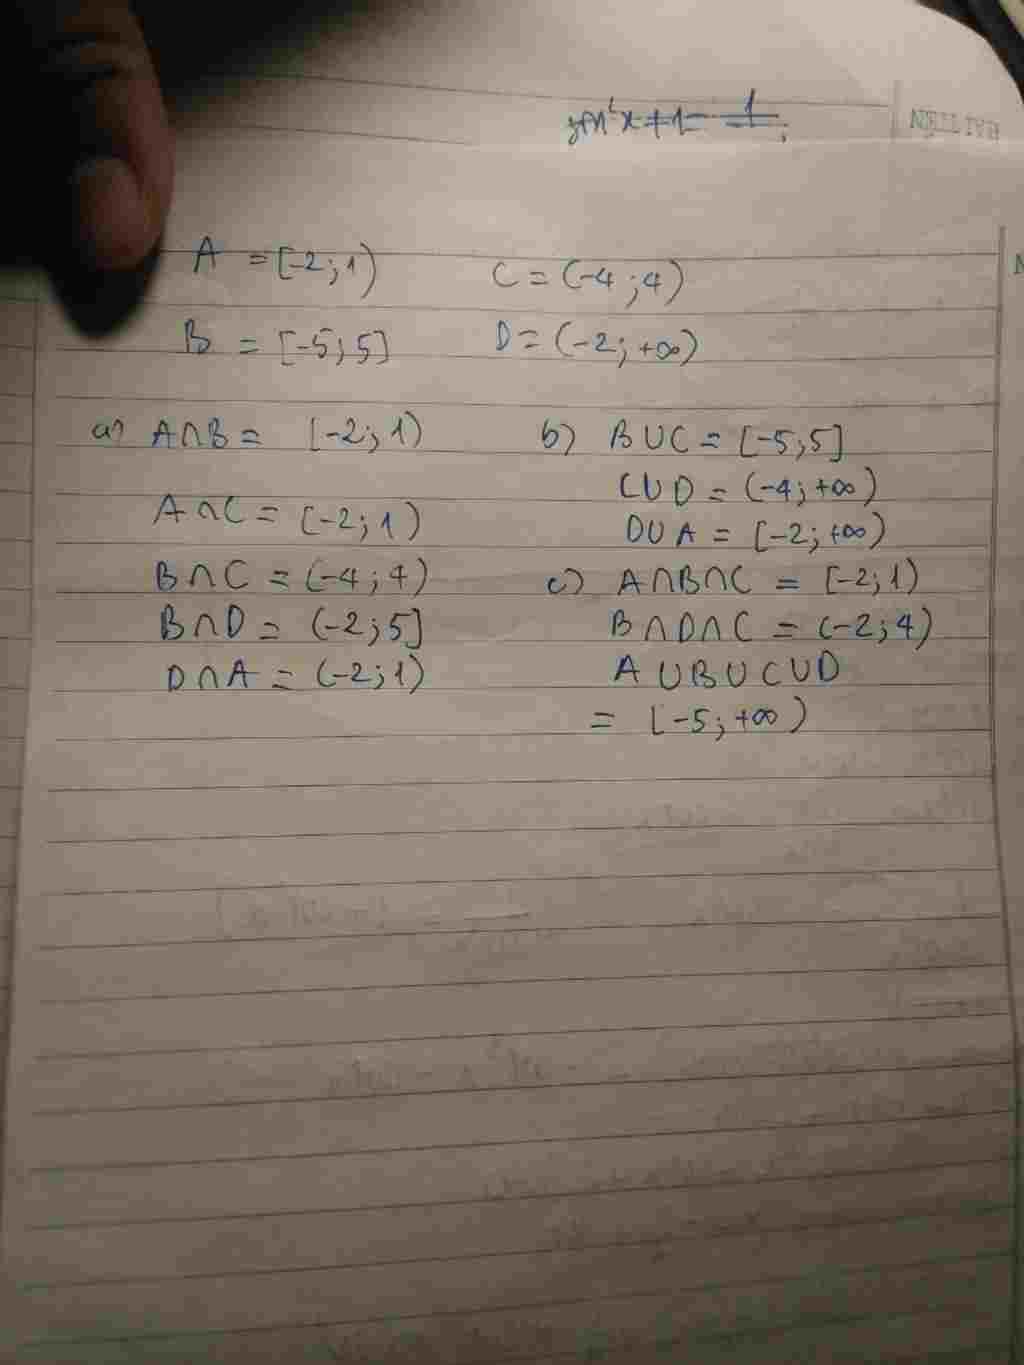 A = [-2; 1)
B = [-5; 5]
C = (-4; 4)
D = (-2; +∞)
a) A∩B = [-2; 1)
A∩C = [-2; 1)
B∩C = (-4; 4)
B∩D = (-2; 5]
D∩A = (-2; 1)
b) B∪C = [-5; 5]
C∪D = (-4; +∞)
D∪A = [-2; +∞)
c) A∩B∩C = [-2; 1)
B∩D∩C = (-2; 4)
A∪B∪C∪D
= [-5; +∞)